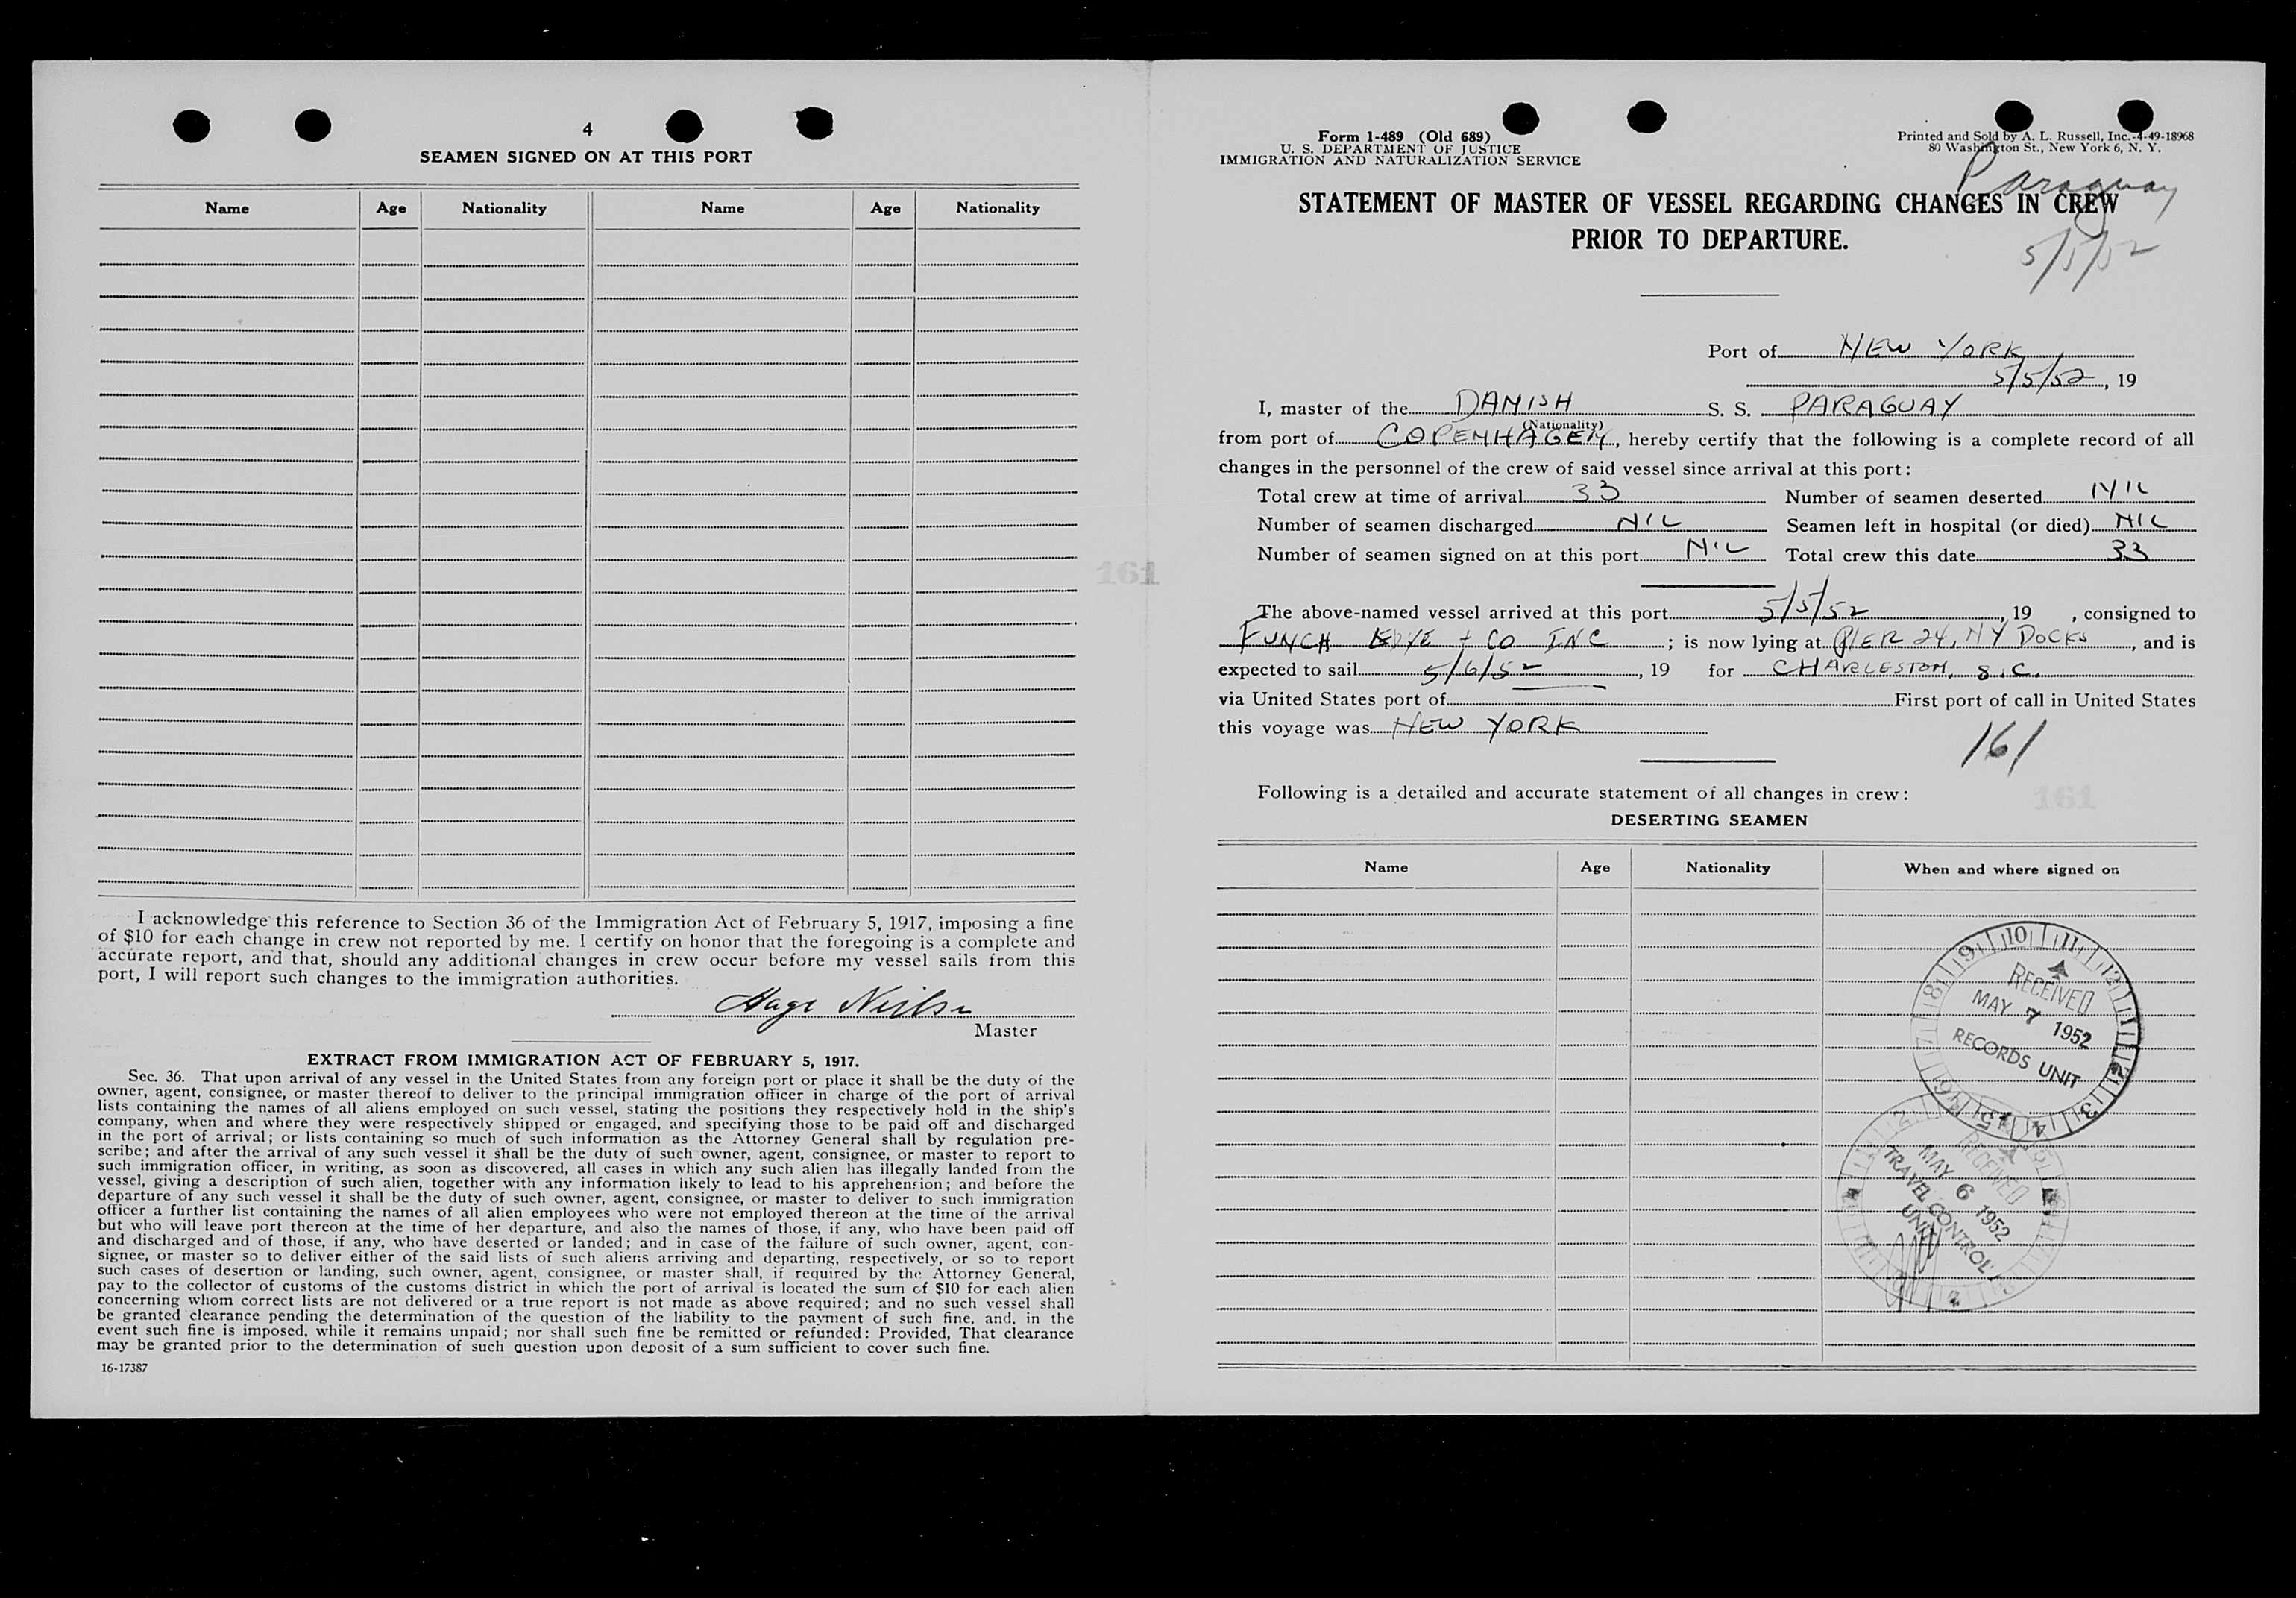 4
SEAMEN SIGNED ON AT THIS PORT
Name Age Nationality Name Age Nationality
161
I acknowledge this reference to Section 36 of the Immigration Act of February 5, 1917, imposing a fine
of $10 for each change in crew not reported by me. I certify on honor that the foregoing is a complete and
accurate report, and that, should any additional changes in crew occur before my vessel sails from this
port, I will report such changes to the immigration authorities.
Master
EXTRACT FROM IMMIGRATION ACT OF FEBRUARY 5, 1917.
Sec. 36. That upon arrival of any vessel in the United States from any foreign port or place it shall be the duty of the
owner, agent, consignee, or master thereof to deliver to the principal immigration officer in charge of the port of arrival
lists containing the names of all aliens employed on such vessel, stating the positions they respectively hold in the ship's
company, when and where they were respectively shipped or engaged, and specifying those to be paid off and discharged
in the port of arrival; or lists containing so much of such information as the Attorney General shall by regulation pre-
scribe; and after the arrival of any such vessel it shall be the duty of such owner, agent, consignee, or master to report to
such immigration officer, in writing, as soon as discovered, all cases in which any such alien has illegally landed from the
vessel, giving a description of such alien, together with any information likely to lead to his apprehension; and before the
departure of any such vessel it shall be the duty of such owner, agent, consignee, or master to deliver to such immigration
officer a further list containing the names of all alien employees who were not employed thereon at the time of the arrival
but who will leave port thereon at the time of her departure, and also the names of those, if any, who have been paid off
and discharged and of those, if any, who have deserted or landed; and in case of the failure of such owner, agent, con-
signee, or master so to deliver either of the said lists of such aliens arriving and departing, respectively, or so to report
such cases of desertion or landing, such owner, agent, consignee, or master shall, if required by the Attorney General,
pay to the collector of customs of the customs district in which the port of arrival is located the sum of $10 for each alien
concerning whom correct lists are not delivered or a true report is not made as above required; and no such vessel shall
be granted clearance pending the determination of the question of the liability to the payment of such fine, and, in the
event such fine is imposed, while it remains unpaid; nor shall such fine be remitted or refunded: Provided, That clearance
may be granted prior to the determination of such question upon deposit of a sum sufficient to cover such fine.
16-17387
Form 1-489 (Old 689)
U. S. DEPARTMENT OF JUSTICE
IMMIGRATION AND NATURALIZATION SERVICE
Printed and Sold by A. L. Russell, Inc.-4-49-18968
80 Washington St., New York 6, N. Y.
Paraguay
STATEMENT OF MASTER OF VESSEL REGARDING CHANGES IN CREW
PRIOR TO DEPARTURE.
5/5/52
Port of NEW YORK
5/5/52, 19
I, master of the DANISH S. S. PARAGUAY
(Nationality)
from port of COPENHAGEN, hereby certify that the following is a complete record of all
changes in the personnel of the crew of said vessel since arrival at this port:
Total crew at time of arrival 33 Number of seamen deserted NIL
Number of seamen discharged NIL Seamen left in hospital (or died) NIL
Number of seamen signed on at this port NIL Total crew this date 33
The above-named vessel arrived at this port 5/5/52, 19 , consigned to
FUNCH EDYE + CO INC; is now lying at PIER 24, NY DOCKS, and is
expected to sail 5/6/52, 19 for CHARLESTON, S.C.
via United States port of First port of call in United States
this voyage was NEW YORK
161
Following is a detailed and accurate statement of all changes in crew:
161
DESERTING SEAMEN
Name Age Nationality When and where signed on
RECEIVED
MAY 7 1952
RECORDS UNIT
RECEIVED
MAY 6 1952
TRAVEL CONTROL
UNIT